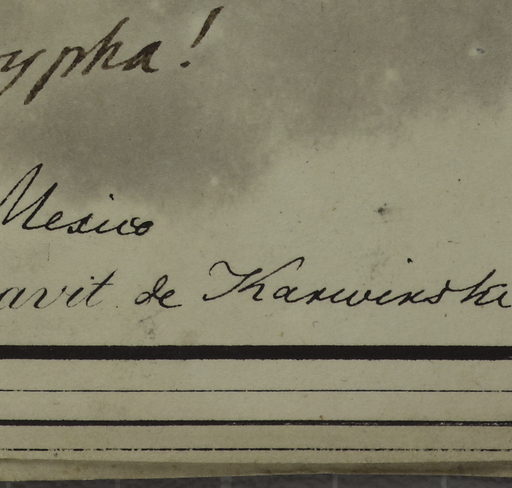 ypha!
Mexico
avit de Karwinski